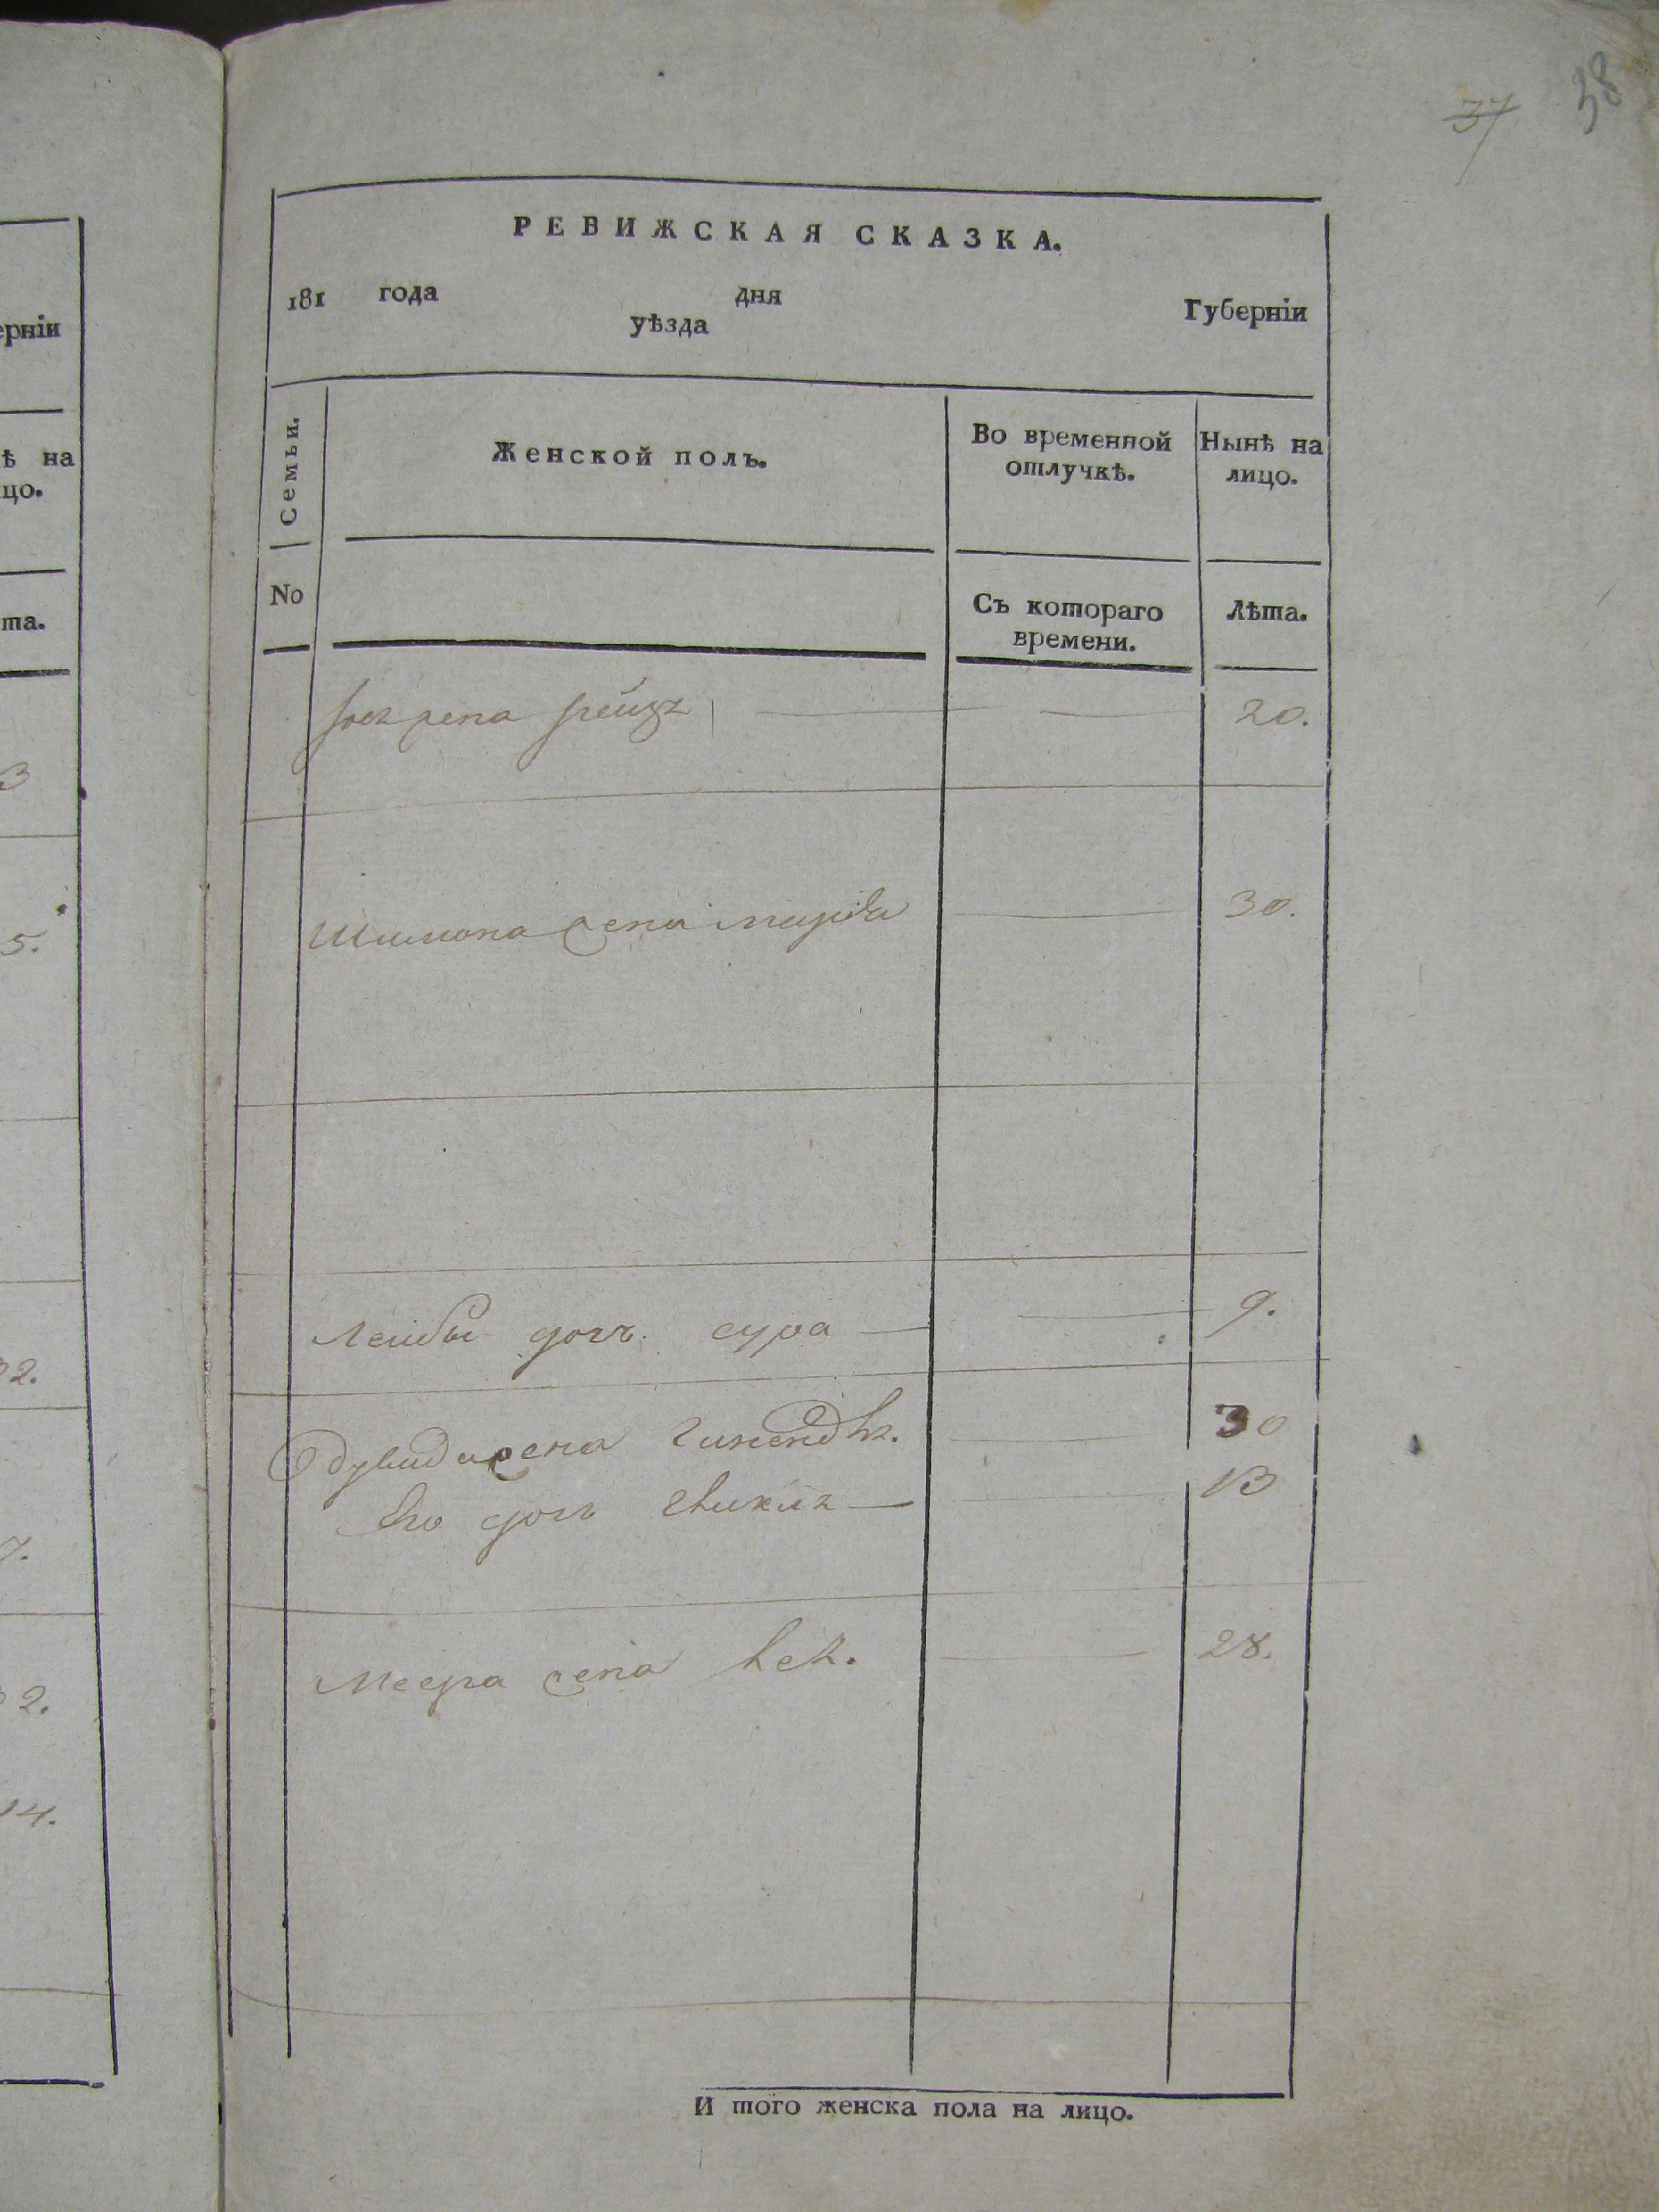 ерніи
ѣ на
цо.
та.
3
5.
32.
7.
32.
14.
37 38
РЕВИЖСКАЯ СКАЗКА.
181 года дня
уѣзда Губерніи
Семьи. Женской полъ. Во временной отлучкѣ. Нынѣ на лицо.
No Съ котораго времени. Лѣта.
жена 20.
Шимона жена 30.
Лейбы дочь. сура 9.
жена 30
Его дочь 13
Меера жена 28.
И того женска пола на лицо.